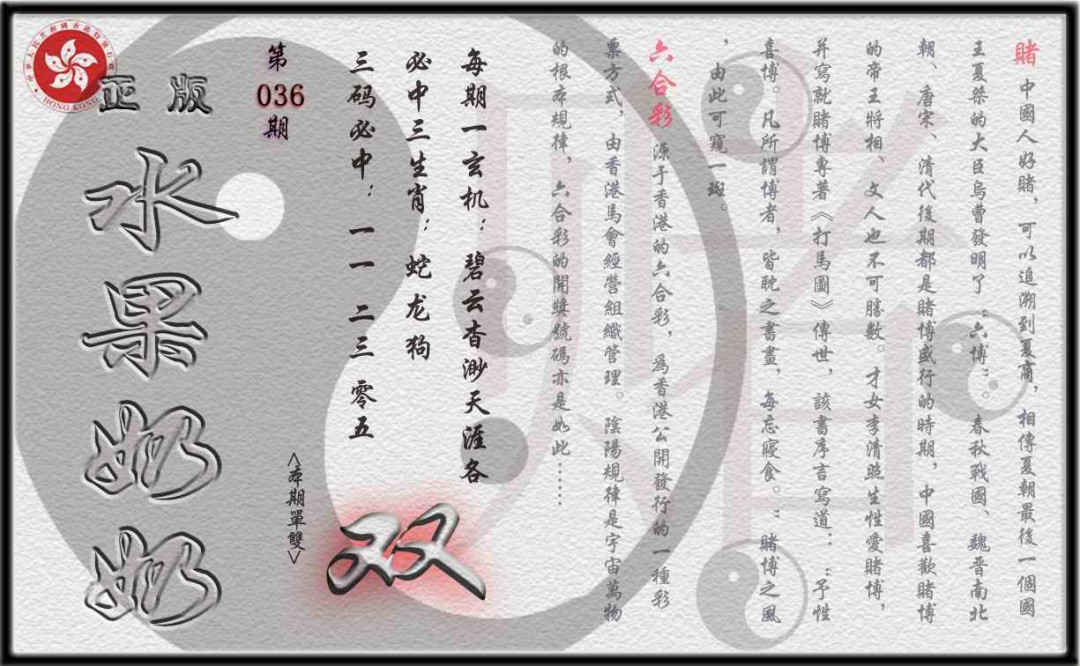 賭 中國人好賭，可以追溯到夏商，相傳夏朝最後一個國
王夏桀的大臣烏曹發明了“六博”。春秋戰國、魏晉南北
朝、唐宋、清代後期都是賭博盛行的時期，中國喜歡賭博
的帝王將相、文人也不可勝數。才女李清照生性愛賭博，
并寫就賭博專著《打馬圖》傳世，該書序言寫道：“予性
喜博。凡所謂博者，皆耽之書畫，每忘寢食。”賭博之風
，由此可窺一斑。
六合彩 源于香港的六合彩，爲香港公開發行的一種彩
票方式，由香港馬會經營組織管理。陰陽規律是宇宙萬物
的根本規律，六合彩的開獎號碼亦是如此……
每期一玄机：碧云杳渺天涯各
必中三生肖：蛇龙狗
三码必中：一一 二三 零五
双
<本期單雙>
第
036
期
正版
水果奶奶
HONG KONG